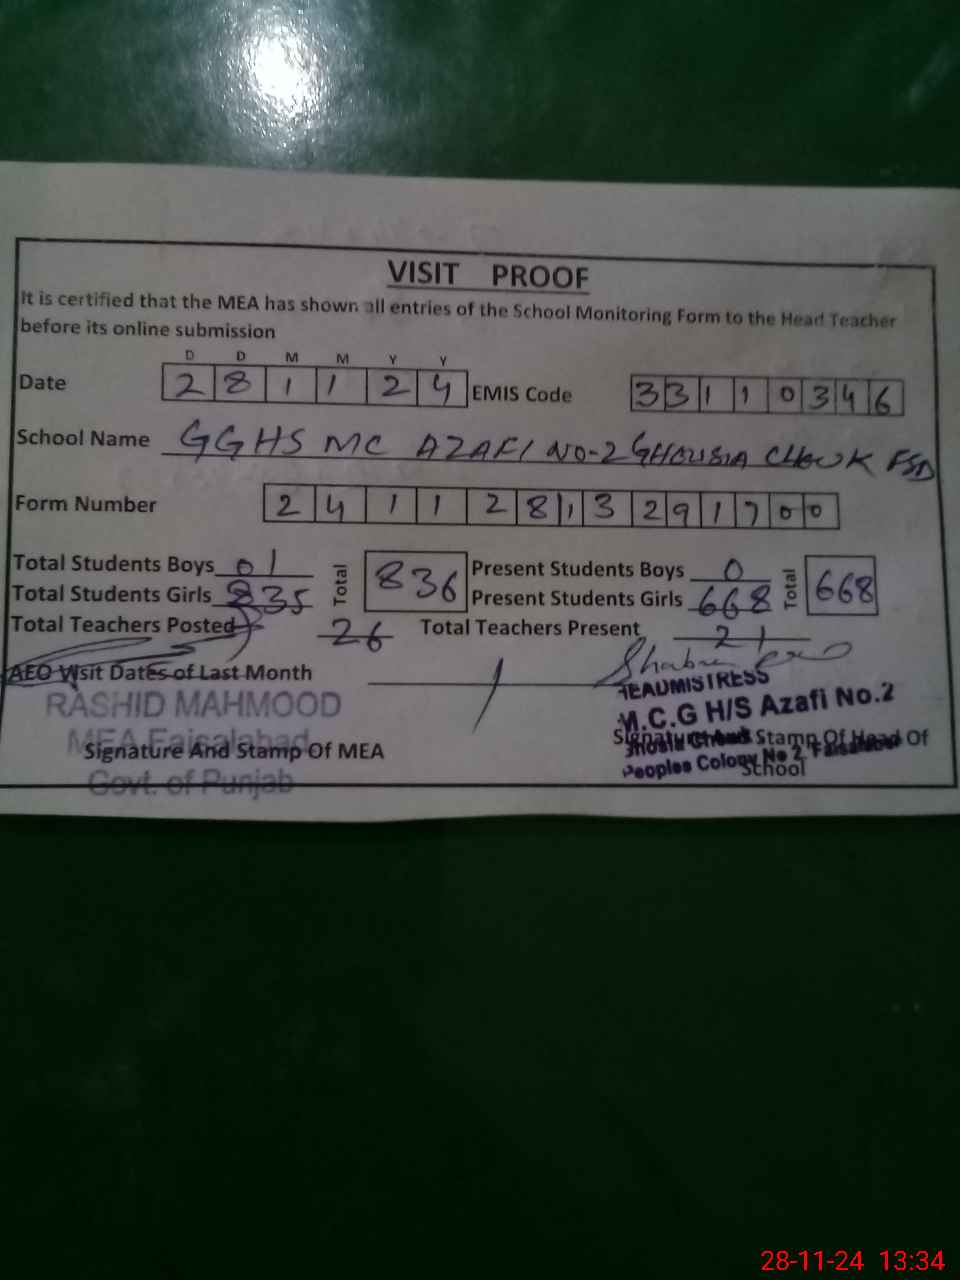 VISIT PROOF
It is certified that the MEA has shown all entries of the School Monitoring Form to the Head Teacher
before its online submission
D D M M Y Y
Date 2 8 1 1 2 4 EMIS Code 3 3 1 1 0 3 4 6
School Name GGHS MC AZAFI NO-2 GHOUSIA CHOUK FSD
Form Number 2 4 1 1 2 8 1 3 2 9 1 7 0 0
Total Students Boys 01 Total 836 Present Students Boys 0 Total 668
Total Students Girls 835 Present Students Girls 668
Total Teachers Posted 26 Total Teachers Present 21
AEO Visit Dates of Last Month
RASHID MAHMOOD
MEA Faisalabad
Govt. of Punjab
Signature And Stamp Of MEA
HEADMISTRESS
M.C.G H/S Azafi No.2
Peoples Colony No 2, Faisalabad
Signature And Stamp Of Head Of
School
28-11-24 13:34